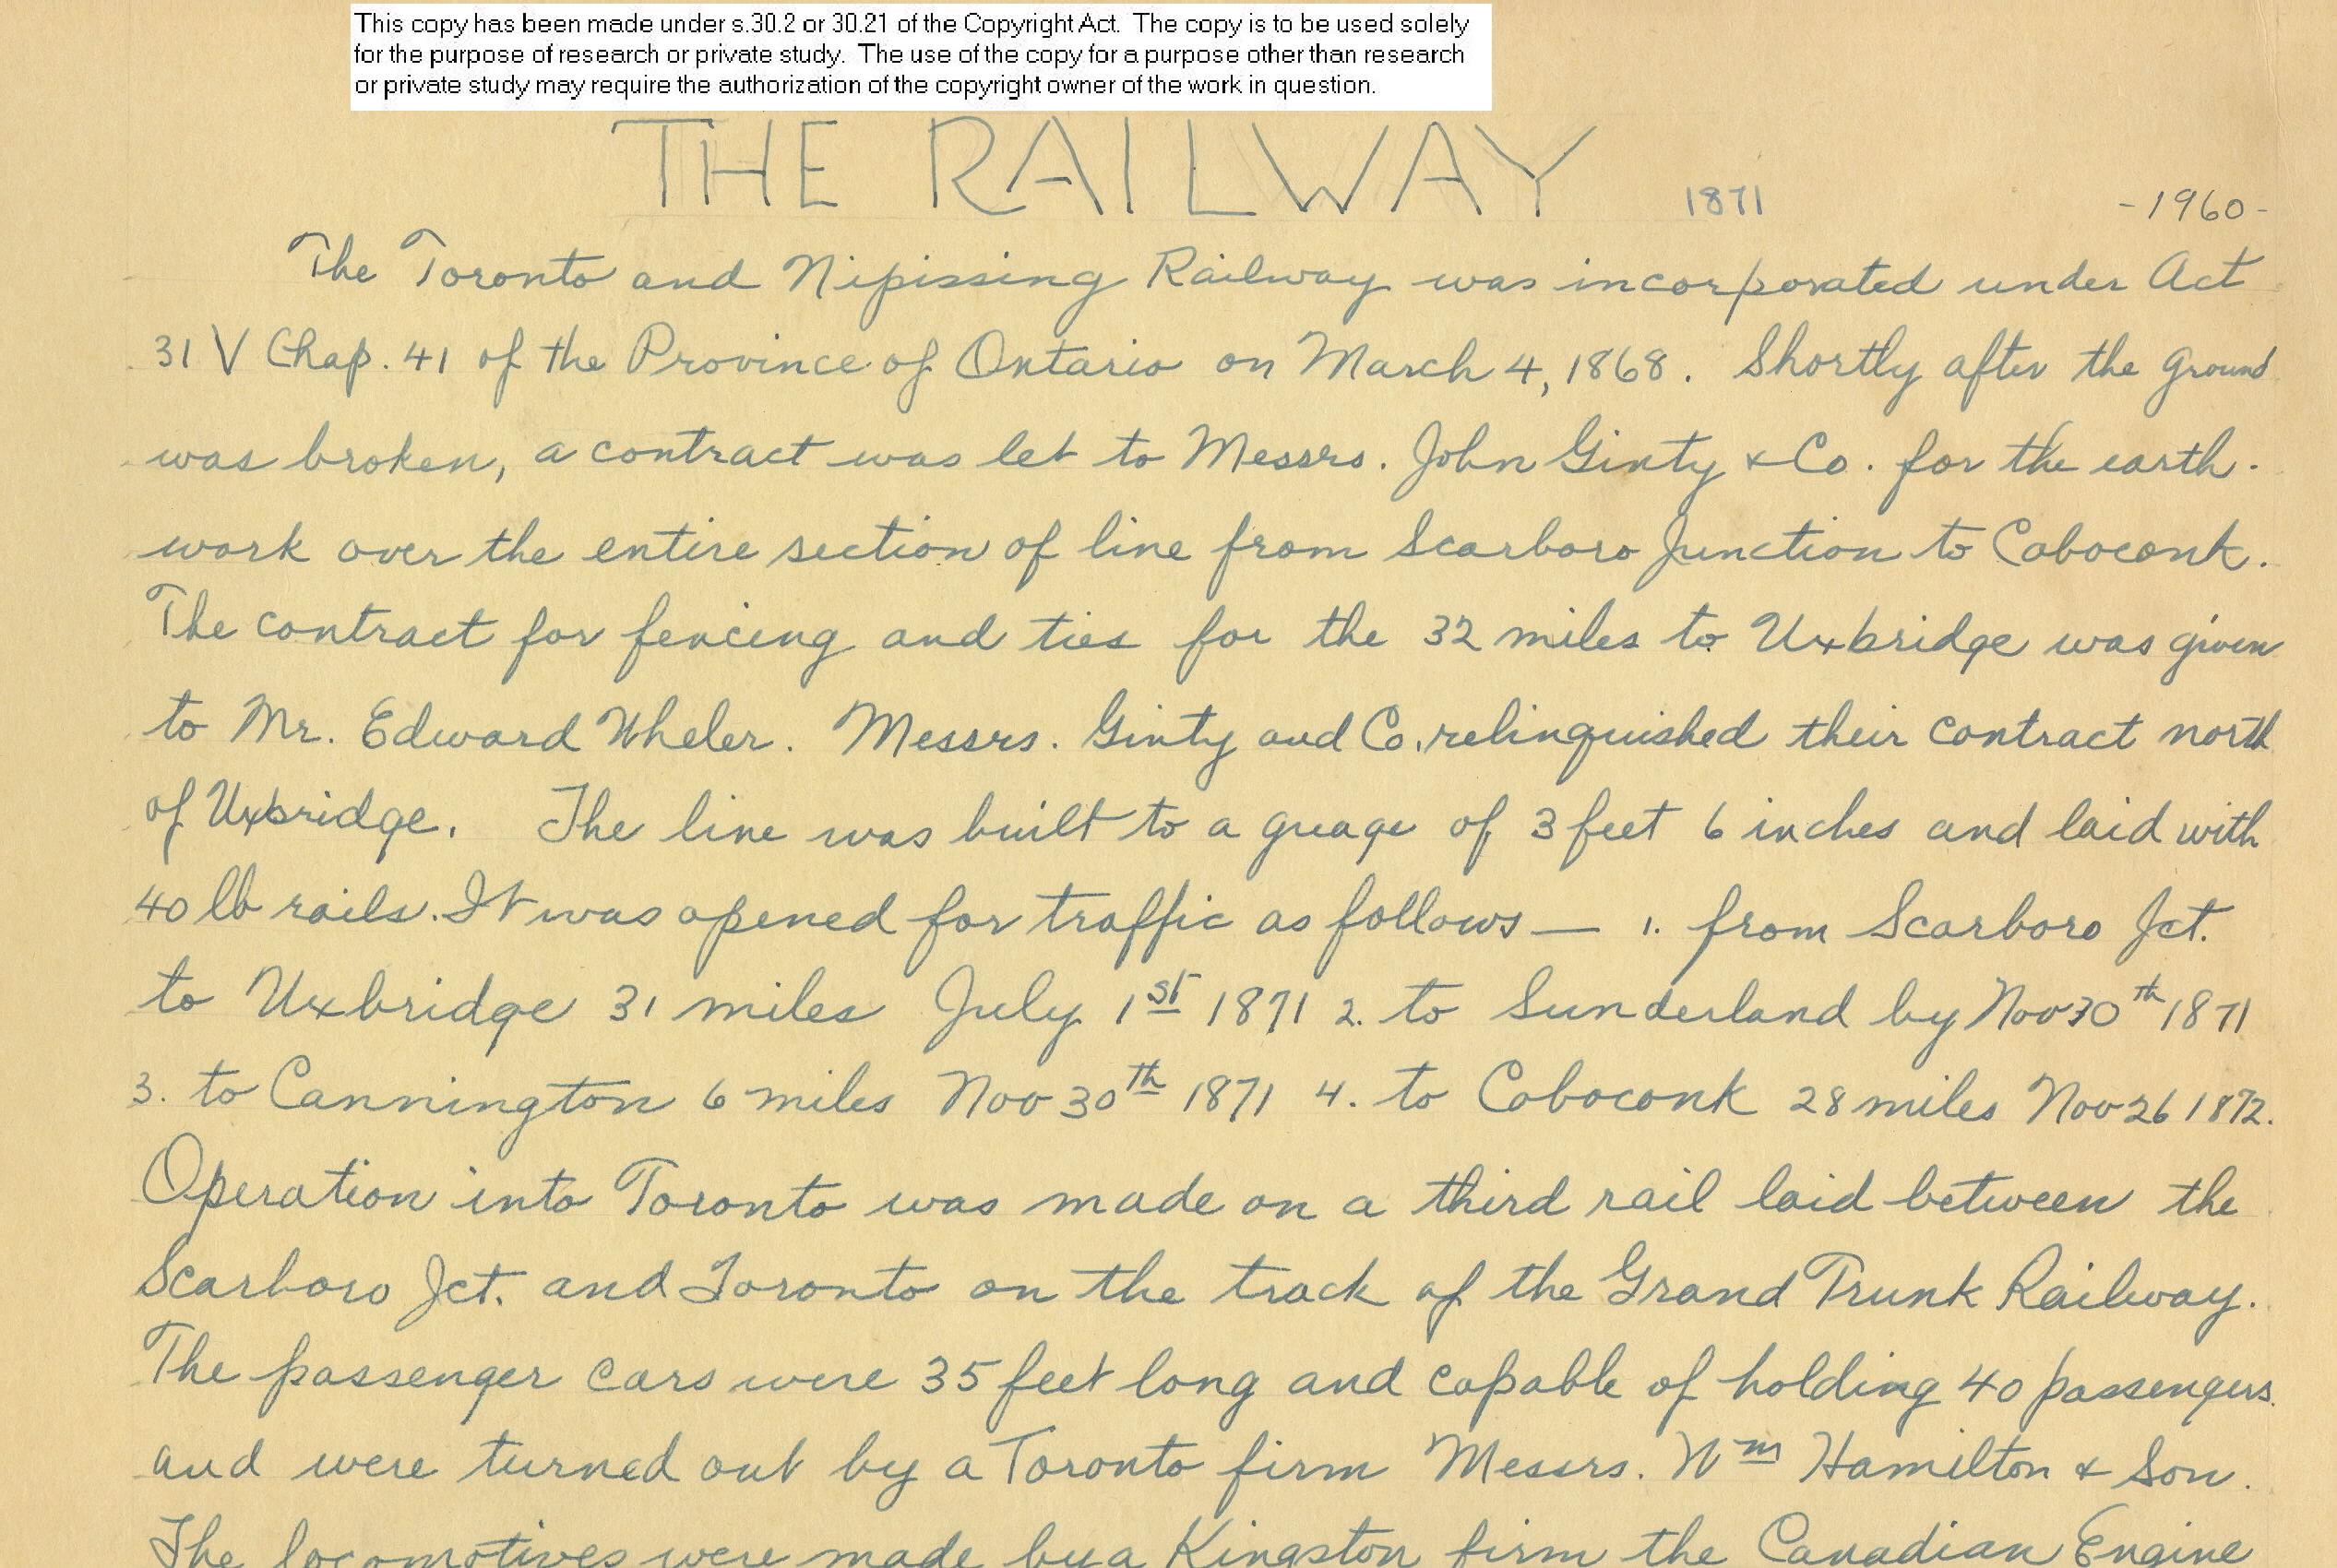 This copy has been made under s.30.2 or 30.21 of the Copyright Act. The copy is to be used solely
for the purpose of research or private study. The use of the copy for a purpose other than research
or private study may require the authorization of the copyright owner of the work in question.
THE RAILWAY 1871 -1960-
The Toronto and Nipissing Railway was incorporated under Act
31 V Chap. 41 of the Province of Ontario on March 4, 1868. Shortly after the ground
was broken, a contract was let to Messrs. John Ginty & Co. for the earth-
work over the entire section of line from Scarboro Junction to Coboconk.
The contract for fencing and ties for the 32 miles to Uxbridge was given
to Mr. Edward Wheler. Messrs. Ginty and Co. relinquished their contract north
of Uxbridge. The line was built to a guage of 3 feet 6 inches and laid with
40 lb rails. It was opened for traffic as follows — 1. from Scarboro Jct.
to Uxbridge 31 miles July 1st 1871 2. to Sunderland by Nov 30th 1871
3. to Cannington 6 miles Nov 30th 1871 4. to Coboconk 28 miles Nov 26 1872.
Operation into Toronto was made on a third rail laid between the
Scarboro Jct. and Toronto on the track of the Grand Trunk Railway.
The passenger cars were 35 feet long and capable of holding 40 passengers
and were turned out by a Toronto firm Messrs. Wm Hamilton & Son.
The locomotives were made by a Kingston firm the Canadian Engine